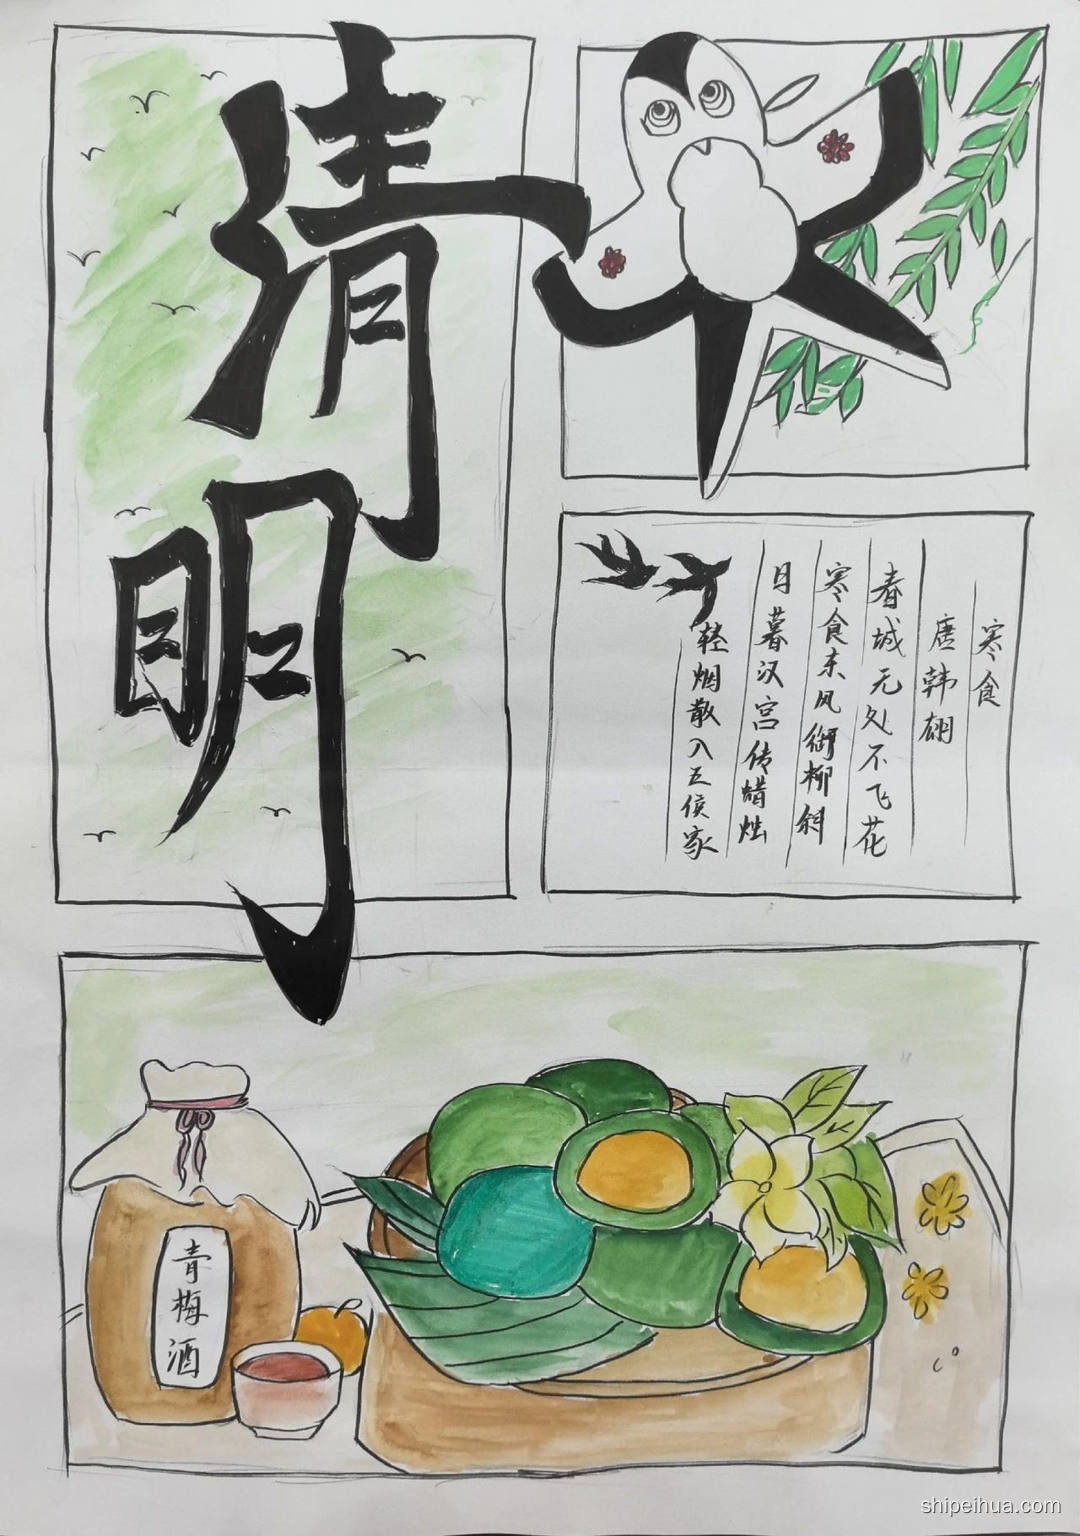 清明
寒食
唐 韩翃
春城无处不飞花
寒食东风御柳斜
日暮汉宫传蜡烛
轻烟散入五侯家
青梅酒
shipeihua.com